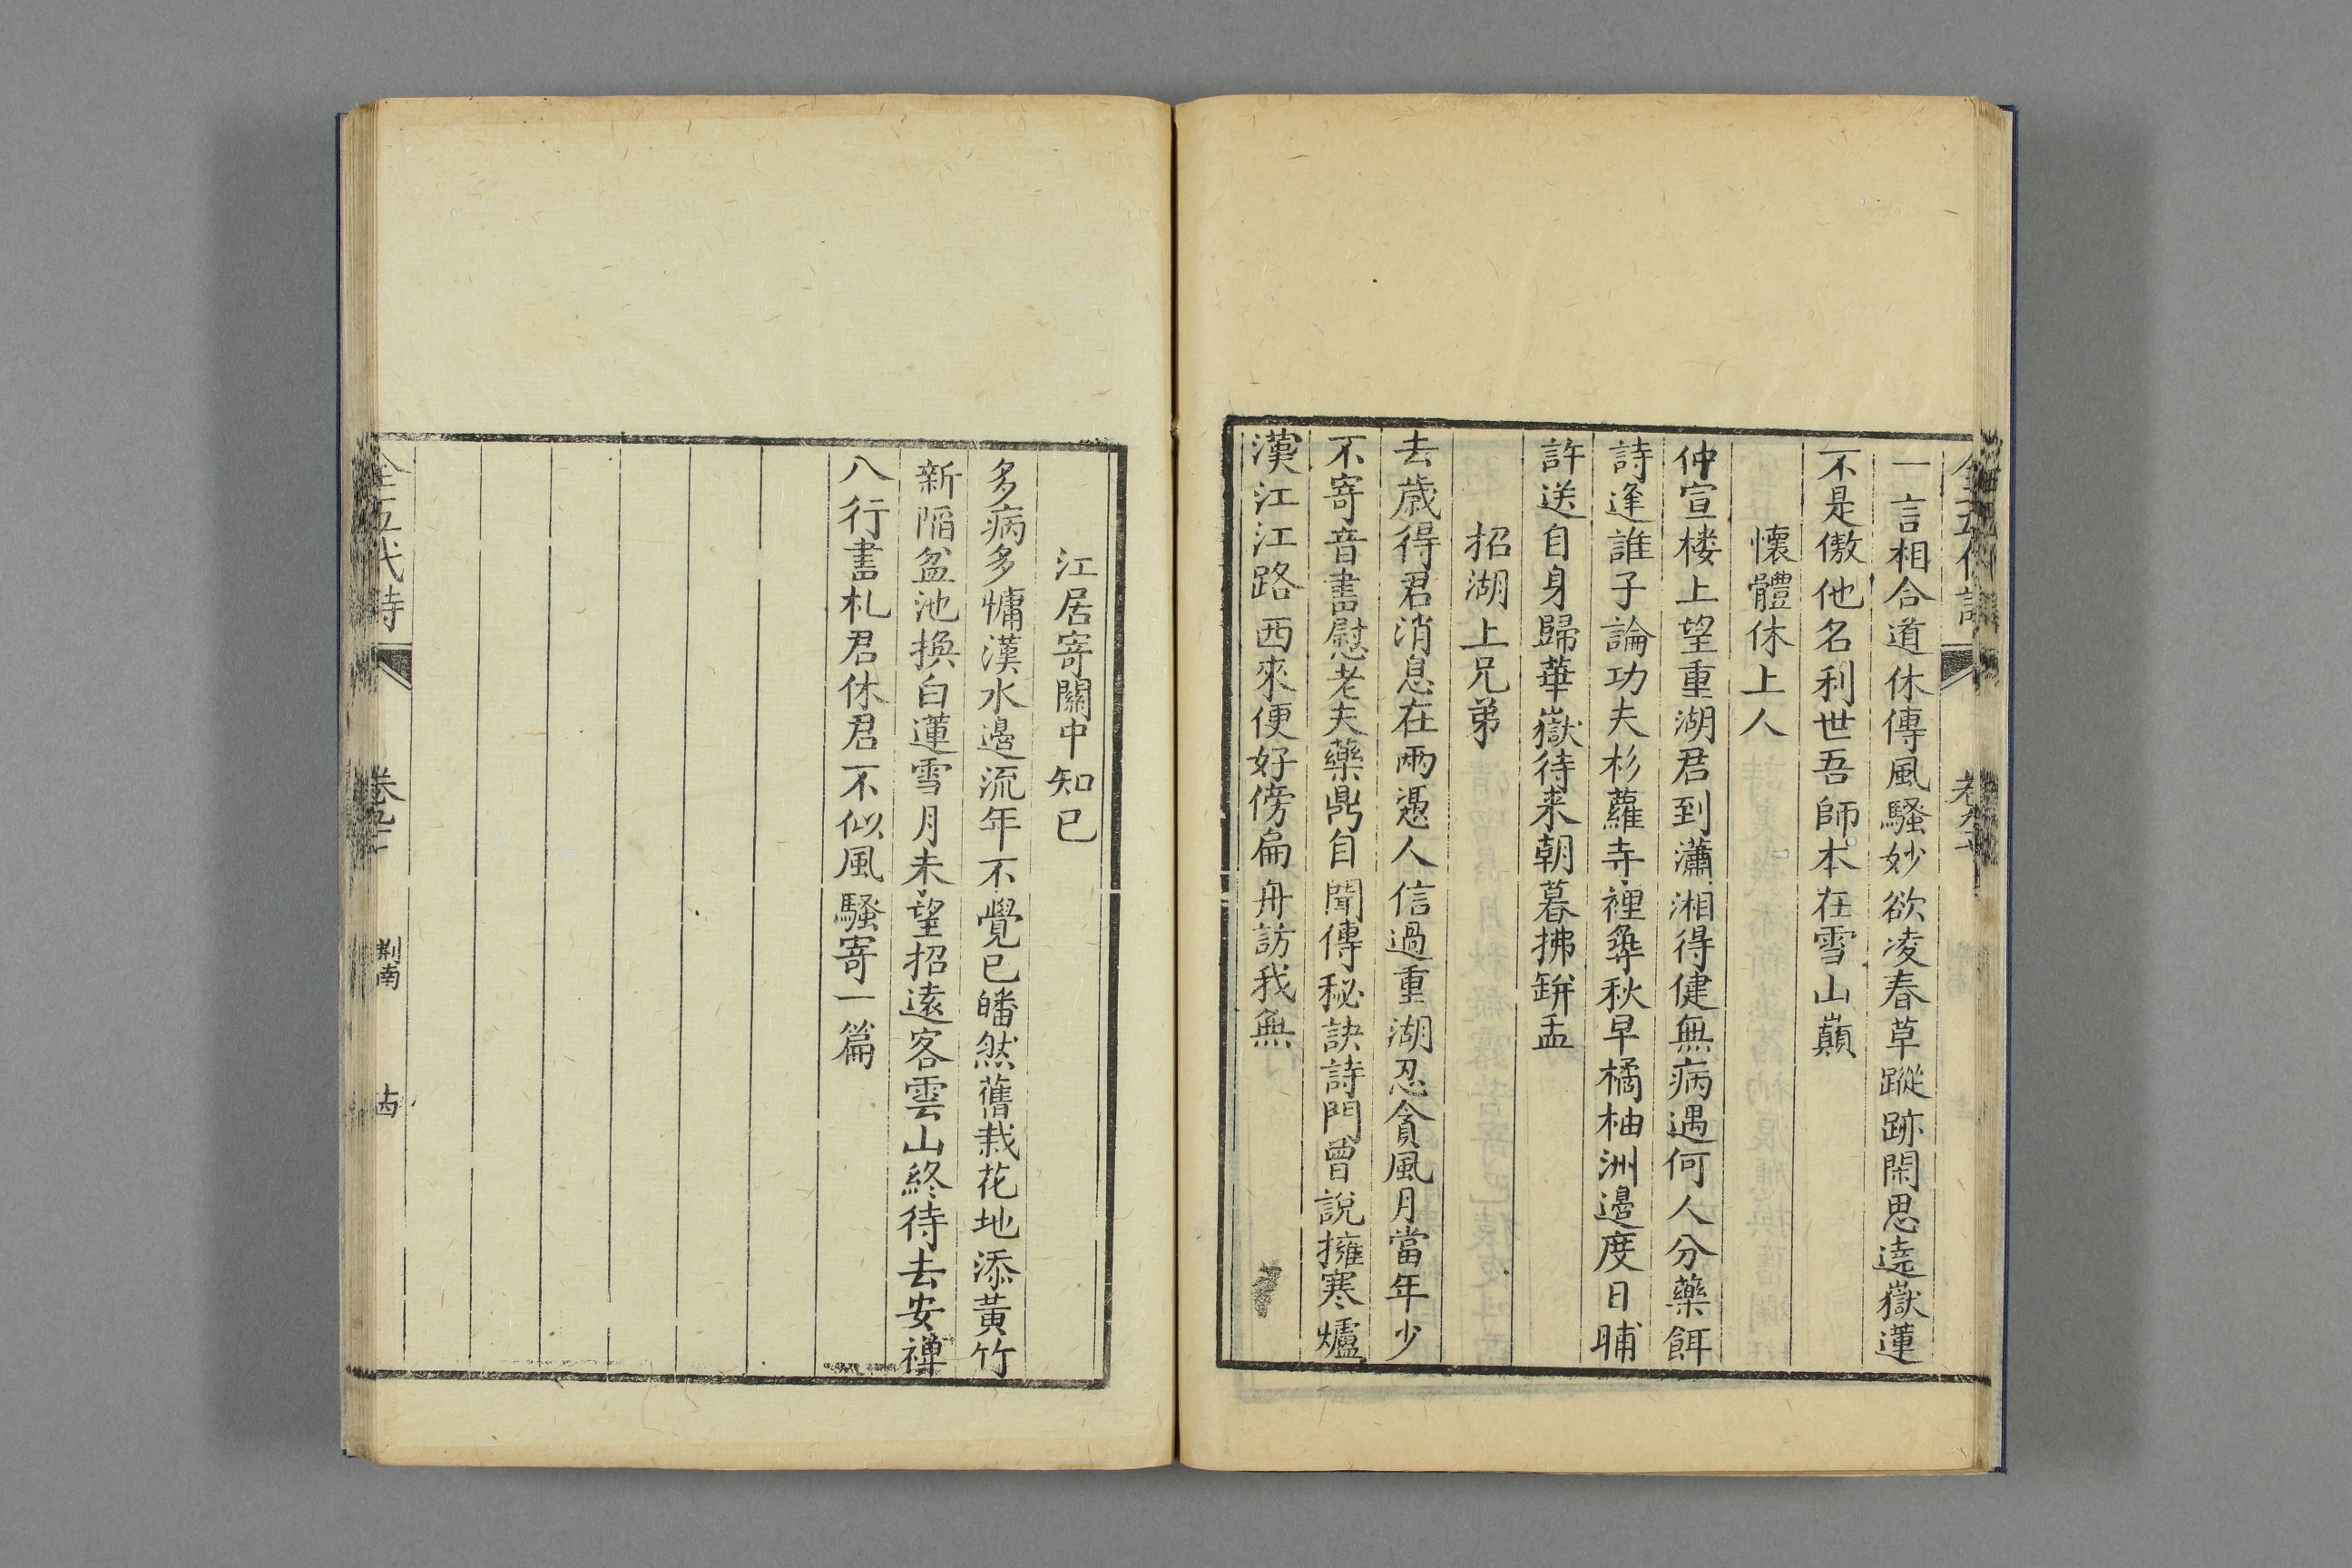 一言相合道休傳風騷妙欲凌春草蹤跡閑思遶嶽蓮
不是傲他名利世吾師本在雪山巔
懷體休上人
仲宣楼上望重湖君到瀟湘得健無病遇何人分藥餌
詩逢誰子論功夫杉蘿寺裡尋秋早橘柚洲邊度日晡
許送自身歸華嶽待来朝暮拂缾盂
招湖上兄弟
去歲得君消息在兩憑人信過重湖忍貪風月當年少
不寄音書慰老夫藥鼎自聞傳秘訣詩門曾說擁寒爐
漢江江路西來便好傍扁舟訪我無
江居寄關中知己
多病多慵漢水邊流年不覺已皤然舊栽花地添黃竹
新陷盆池換白蓮雪月未望招遠客雲山終待去安禪
八行書札君休君不似風騷寄一篇
全五代詩
荆南